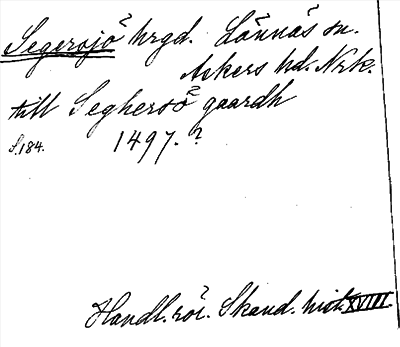 Segersjö hrgd. Lännäs sn.
Askers hd. Nrk.
till Seghersö gaardh
S.184. 1497.?
Handl. rör. Skand. hist. XVIII.